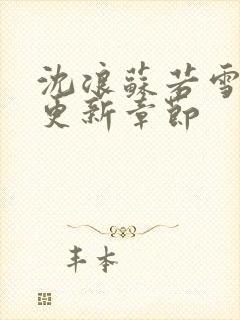 沈浪蘇若雪
更新章節
丰本